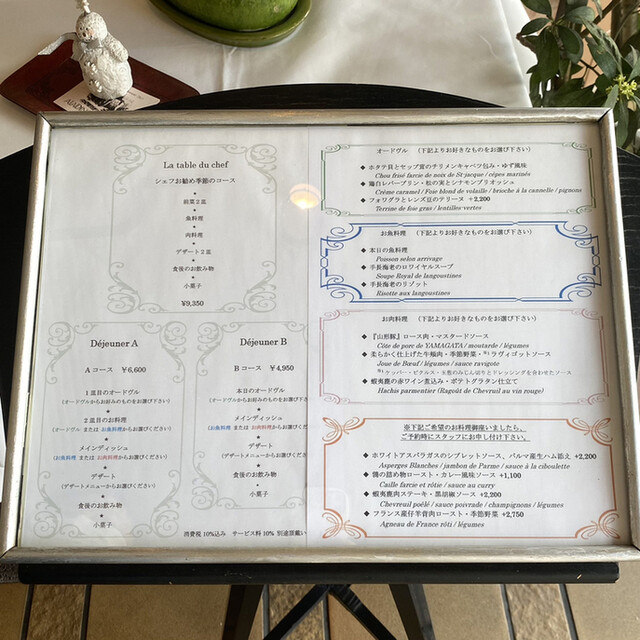 La table du chef
シェフお勧め季節のコース
前菜2皿
*
魚料理
*
肉料理
*
デザート2皿
*
食後のお飲み物
*
小菓子
¥9,350
Déjeuner A
A コース ¥6,600
1皿目のオードヴル
(オードヴルからお好みのものをお選び下さい)
*
2皿目のお料理
(オードヴル または お魚料理からお選びください)
*
メインディッシュ
(お魚料理 または お肉料理からお選びください)
*
デザート
(デザートメニューからお選びください)
*
食後のお飲み物
*
小菓子
Déjeuner B
B コース ¥4,950
本日のオードヴル
(オードヴルからお好みのものをお選び下さい)
*
メインディッシュ
(お魚料理 または お肉料理からお選びくだ
*
デザート
(デザートメニューからお選びください)
*
食後のお飲み物
*
小菓子
消費税 10%込み サービス料 10% 別途頂戴い
オードヴル (下記よりお好きなものをお選び下さい)
◆ ホタテ貝とセップ茸のチリメンキャベツ包み・ゆず風味
Chou frisé farcie de noix de St-jacque / cèpes marinés
◆ 鶏白レバープリン・松の実とシナモンブリオッシュ
Crème caramel / Foie blond de volaille / brioche à la cannelle / pignons
◆ フォワグラとレンズ豆のテリーヌ +2,200
Terrine de foie gras / lentilles vertes
お魚料理 (下記よりお好きなものをお選び下さい)
◆ 本日の魚料理
Poisson selon arrivage
◆ 手長海老のロワイヤルスープ
Soupe Royal de langoustines
◆ 手長海老のリゾット
Risotto aux langoustines
お肉料理 (下記よりお好きなものをお選び下さい)
◆ 『山形豚』ロース肉・マスタードソース
Côte de porc de YAMAGATA / moutarde / légumes
◆ 柔らかく仕上げた牛頬肉・季節野菜・*1ラヴィゴットソース
Joue de Bœuf / légumes / sauce ravigote
*1ケッパー・ピクルス・玉葱のみじん切りとドレッシングを合わせたソース
◆ 蝦夷鹿の赤ワイン煮込み・ポテトグラタン仕立て
Hachis parmentier (Ragoût de Chevreuil au vin rouge)
※下記ご希望のお料理御座いましたら、
ご予約時にスタッフにお申し付け下さい。
◆ ホワイトアスパラガスのシブレットソース、パルマ産生ハム添え +2,200
Asperges Blanches / jambon de Parme / sauce à la ciboulette
◆ 鶉の詰め物ロースト・カレー風味ソース +1,100
Caille farcie et rôtie / sauce au curry
◆ 蝦夷鹿肉ステーキ・黒胡椒ソース +2,200
Chevreuil poêlé / sauce poivrade / champignons / légumes
◆ フランス産仔羊背肉ロースト・季節野菜 +2,750
Agneau de France rôti / légumes